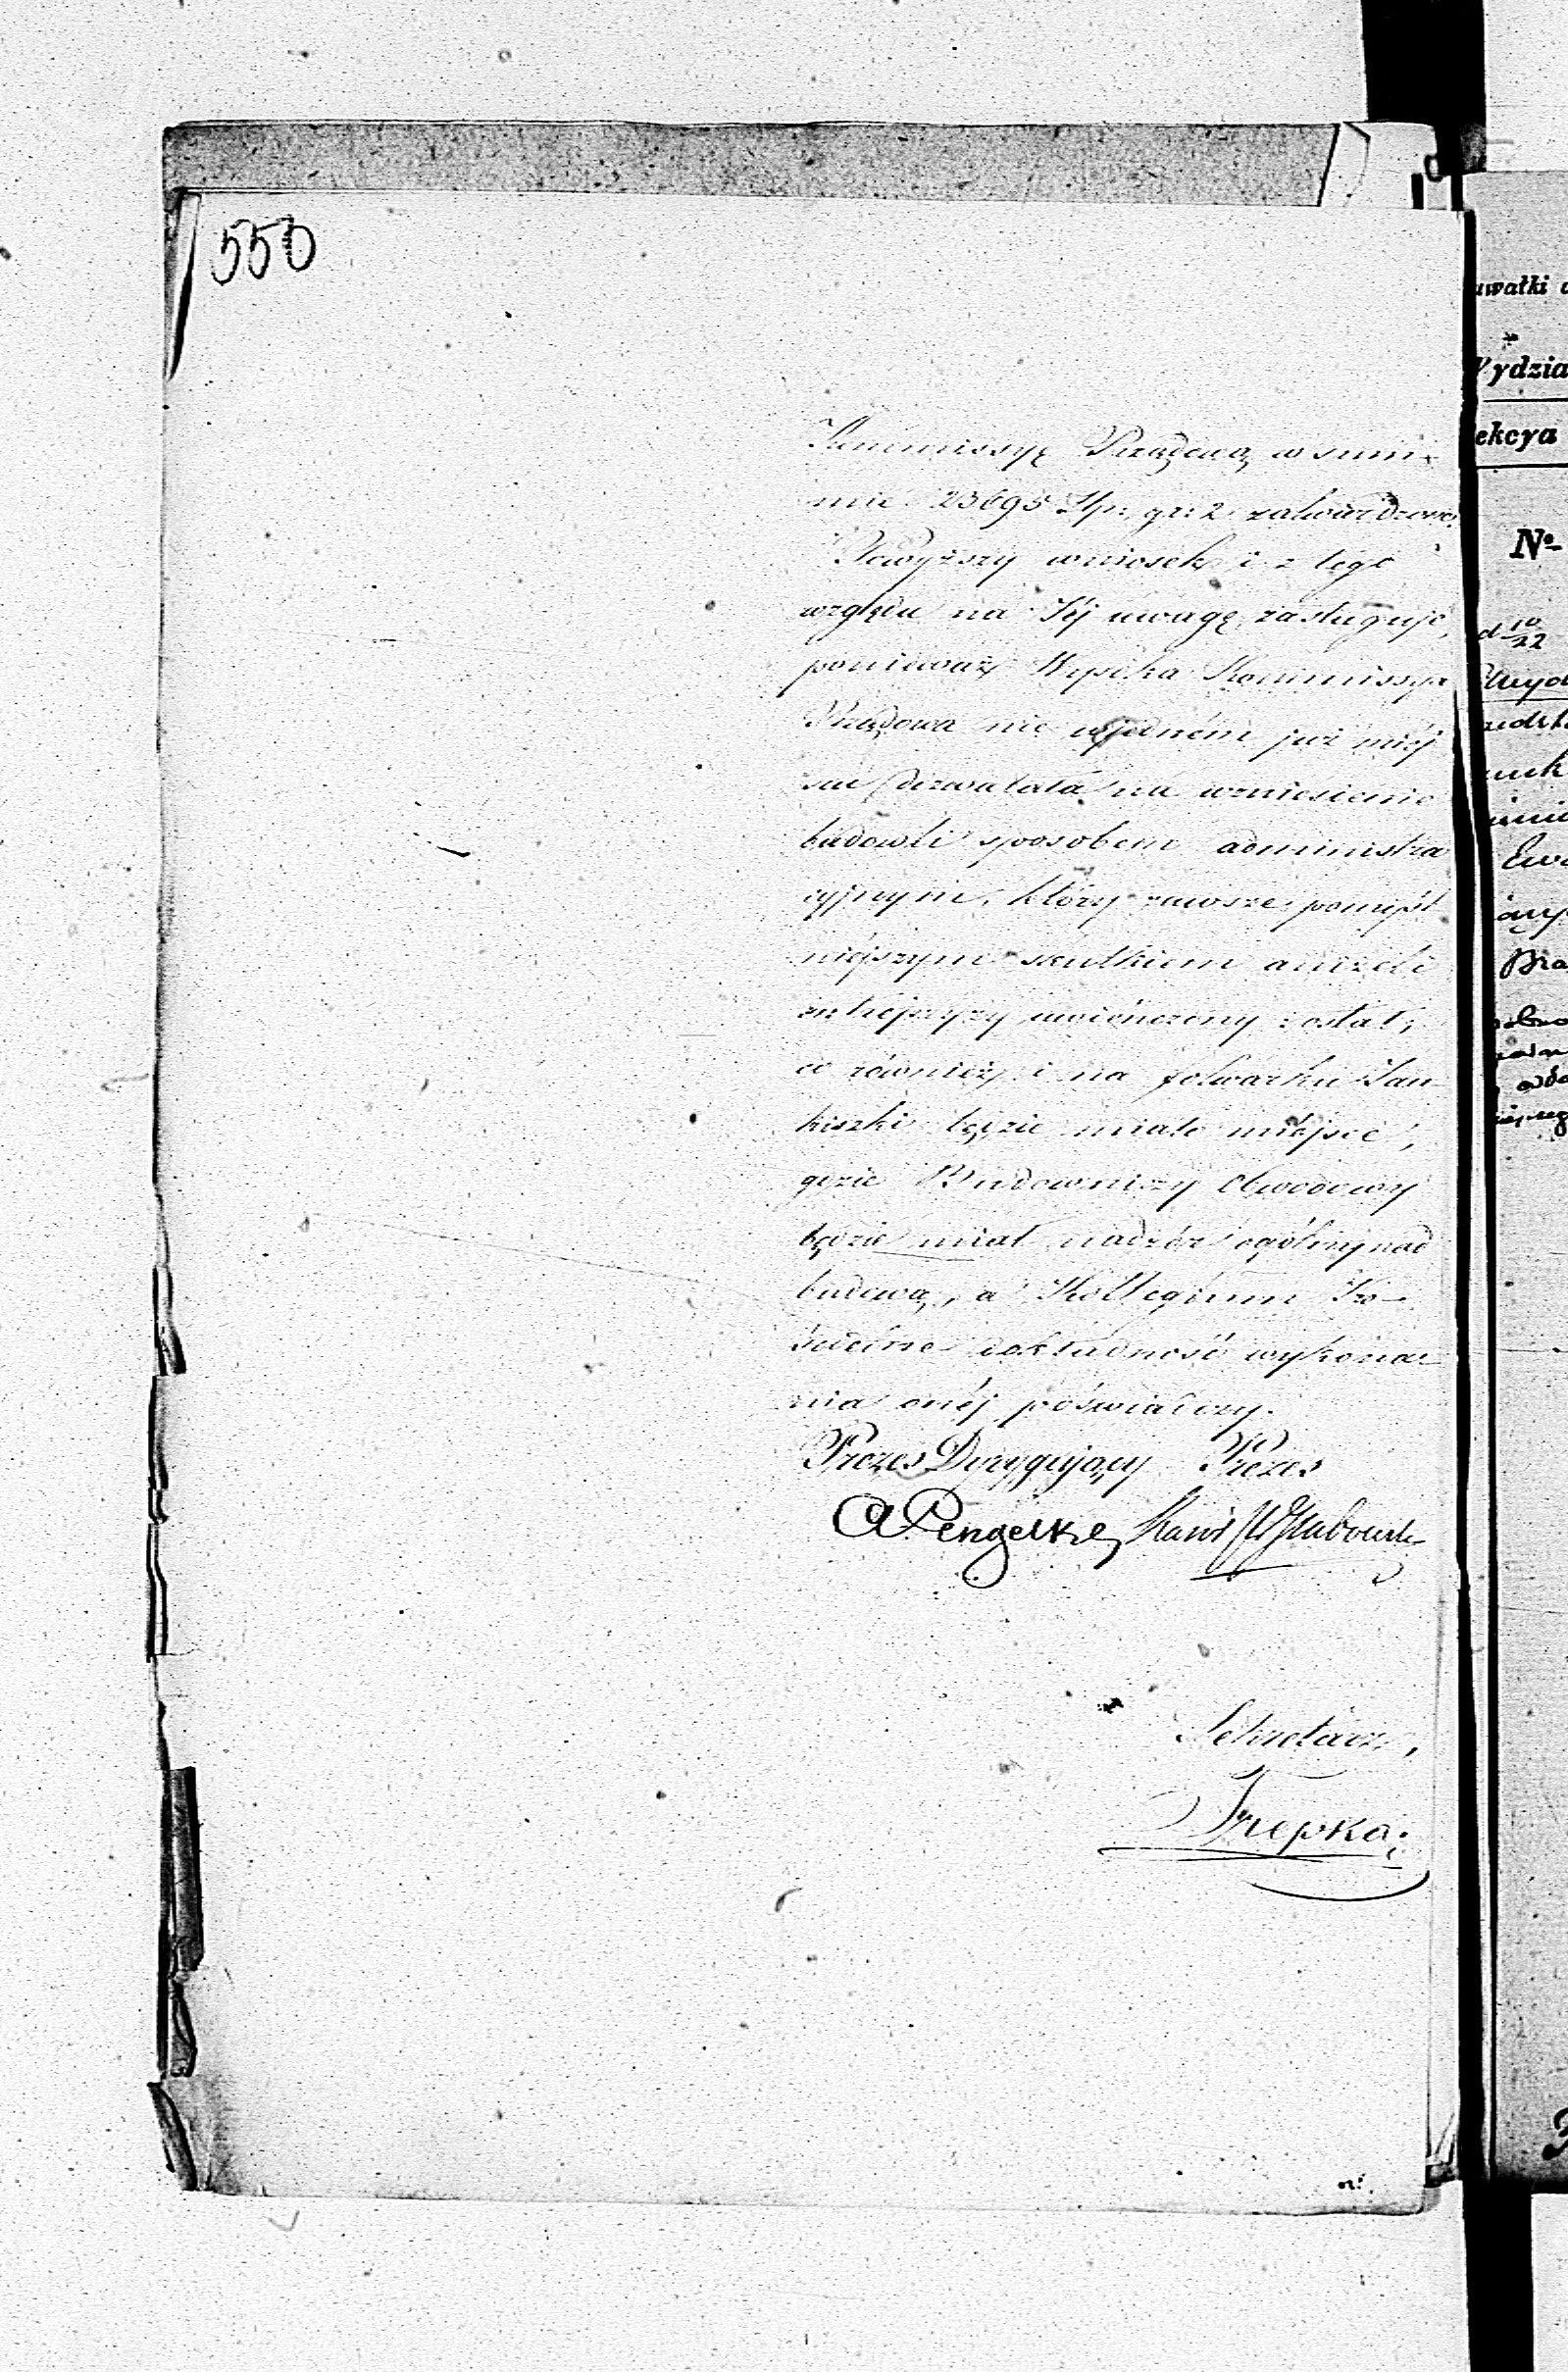 550
Kommissyę Rządową w sum-
mie 23695 Złp: gr: 2 zatwierdzone.
Powyższy wniosek i z tego
względu na Jéj uwagę zasługuje,
ponieważ Wysoka Kommissya
Rządowa nie w jedném już miéj
scu dozwalała na wzniesienie
budowli sposobem administra
cyjnym, który zawsze pomyśl
niéjszym skutkiem aniżeli
uwieńczony został,
co również i na folwarku Jan
kiszki będzie miało miéjsce,
gdzie Budowniczy Obwodowy
będzie miał nadzór ogólny nad
budową, a Kollegium Ko-
ścielne dokładność wykona-
nia onéj poświadczy.
Prezes Dyrygujący Prezes
A Pengelke
Sekretarz,
Trepka.
uwałki d
Wydzia
ekcya
No
d 10/22
Bra